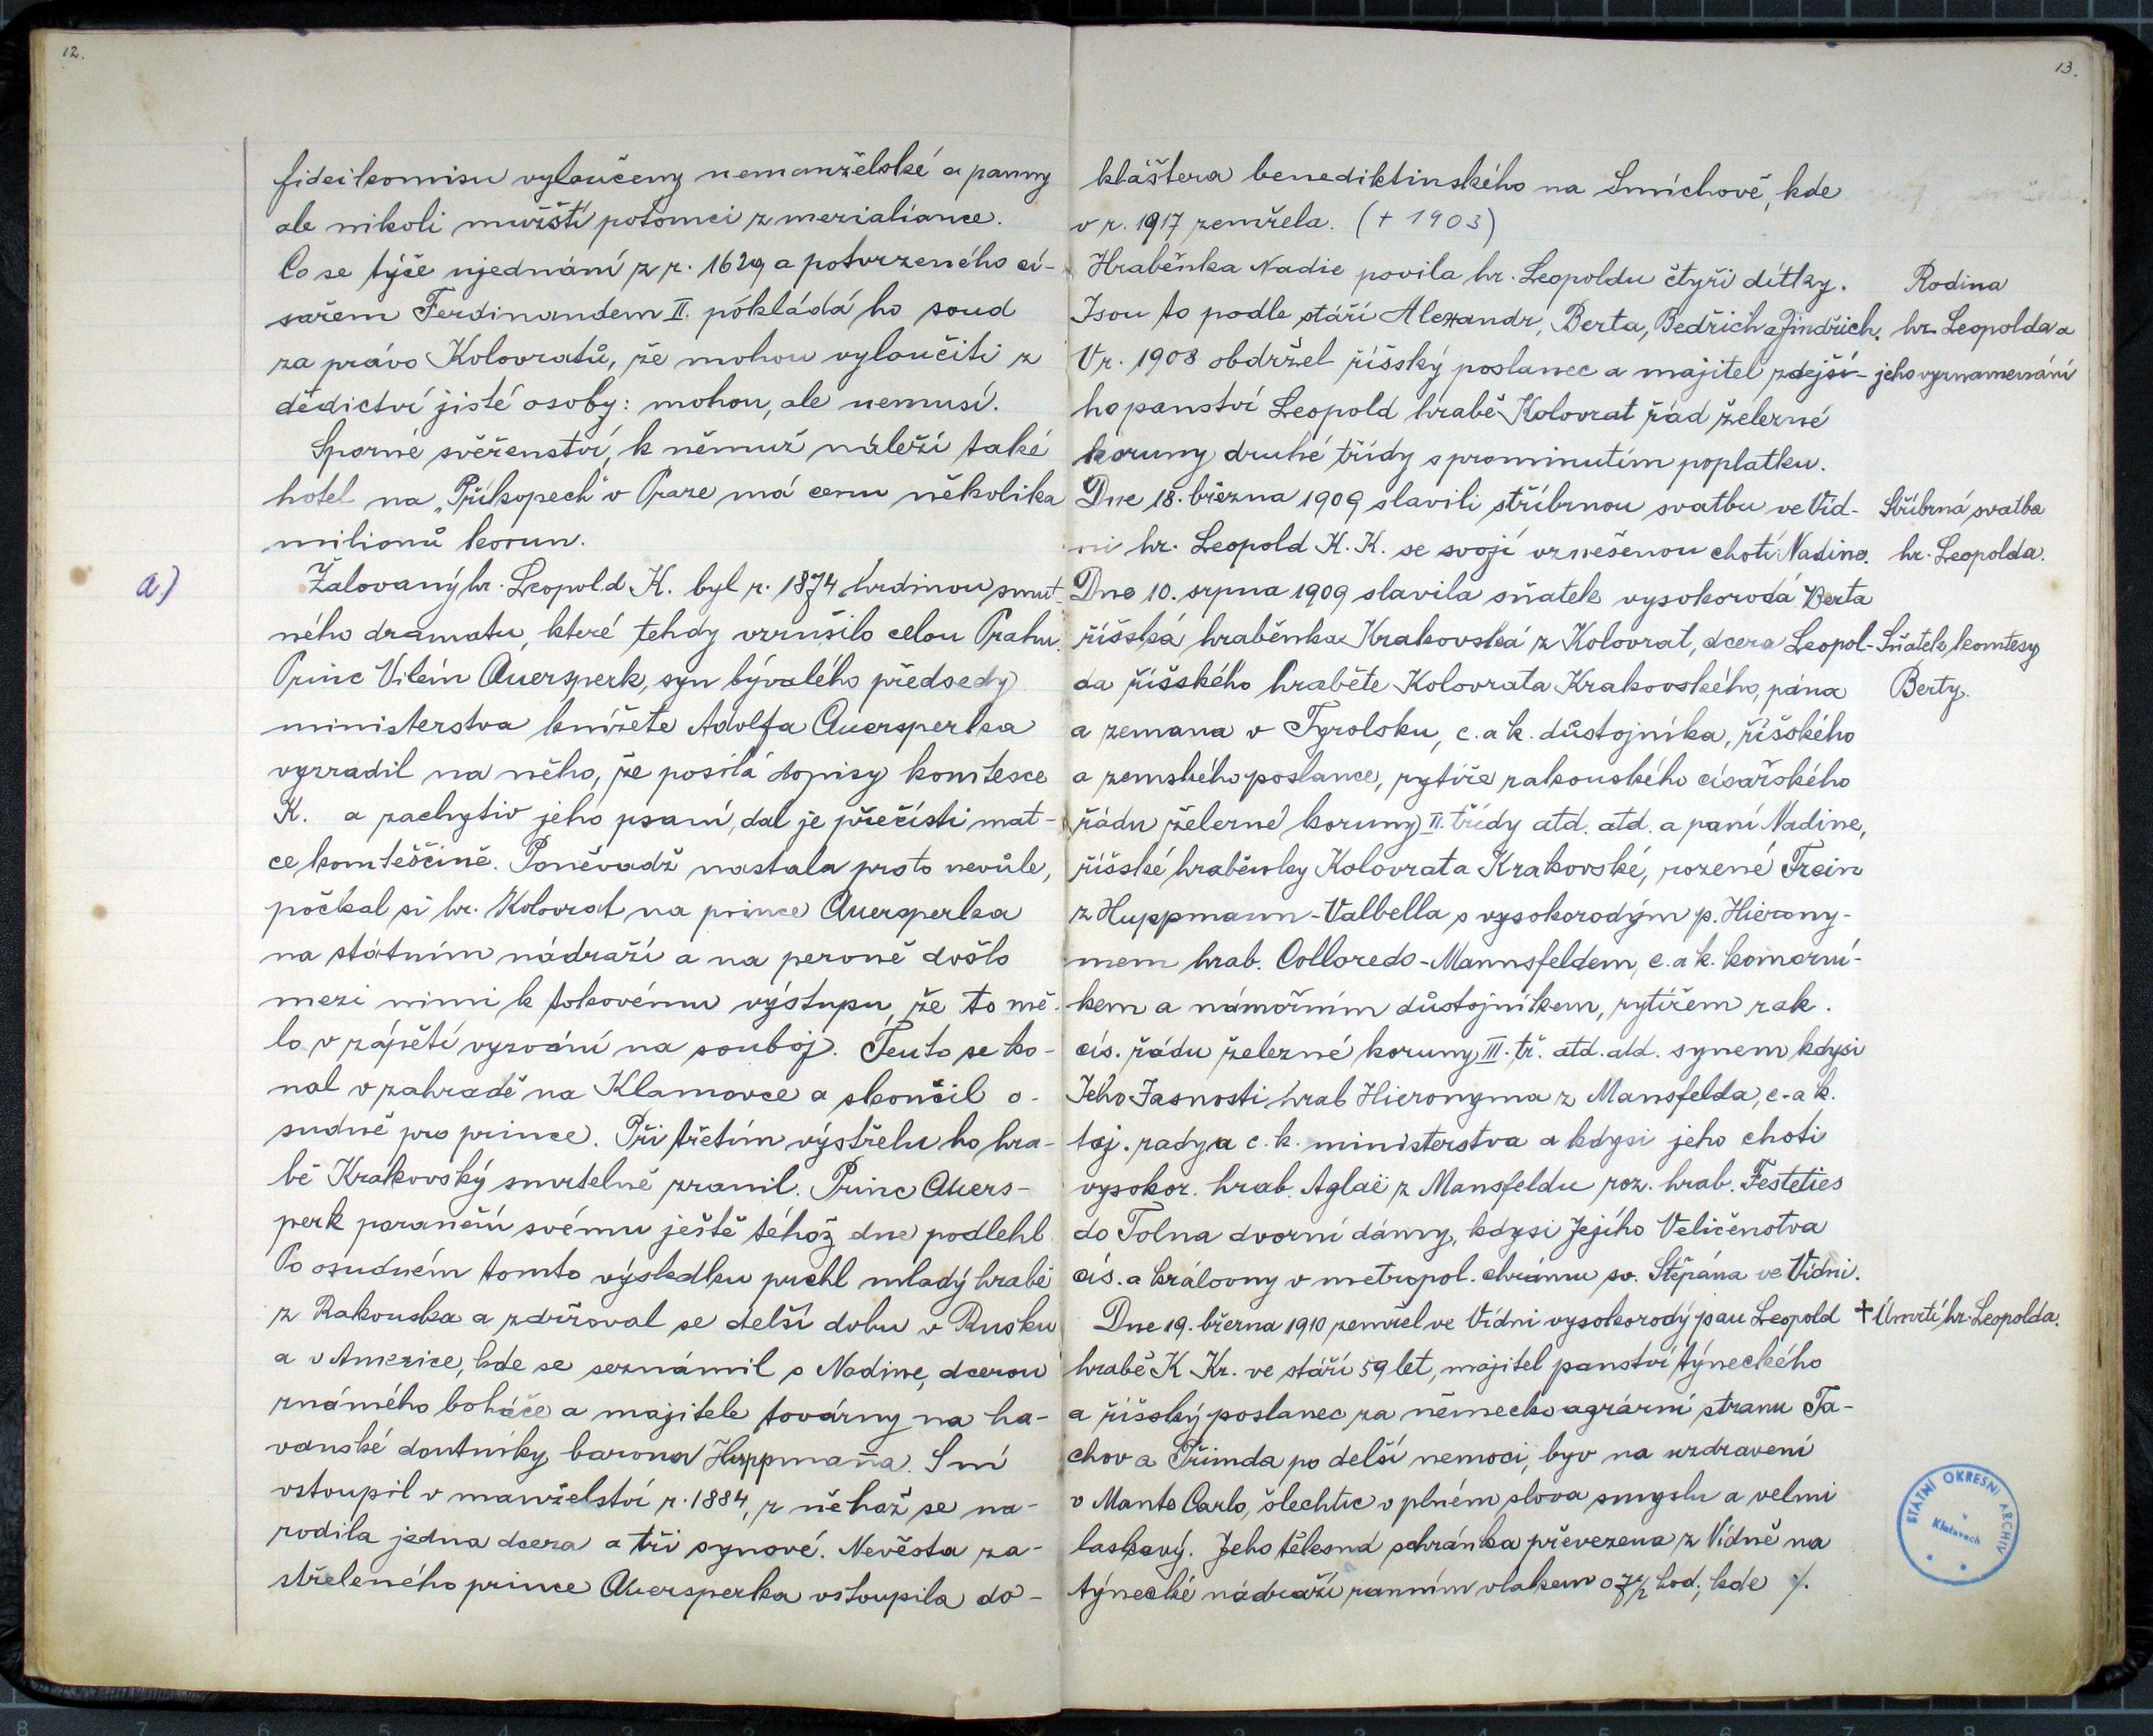 12.
fideikomisu vyloučeny nemanželské a panny
ale nikoli mužští potomci z mezialiance.
Co se týče ujednání z r. 1629 a potvrzeného cí-
sařem Ferdinandem II. pókládá ho soud
za právo Kolovratů, že mohou vyloučiti z
dědictví jisté osoby: mohou, ale nemusí.
Sporné svěřenství, k němuž náleží také
hotel na „Příkopech" v Praze má cenu několika
milionů korun.
a)
Žalovaný hr. Leopold K. byl r. 1874 hrdinou smut-
ného dramatu, které tehdy vzrušilo celou Prahu.
Princ Vilém Auersperk, syn bývalého předsedy
ministerstva knížete Adolfa Auersperka
vyzradil na něho, že posílá dopisy komtesce
K. a zachytiv jeho psaní, dal je přečísti mat-
ce komteščině. Poněvadž nastala proto nevůle,
počkal si hr. Kolovrat na prince Auersperka
na státním nádraží a na peroně došlo
mezi nimi k takovému výstupu, že to mě-
lo v zápětí vyzvání na souboj. Tento se ko-
nal v zahradě na Klamovce a skončil o-
sudně pro prince. Při třetím výstřelu ho hra-
bě Krakovský smrtelně zranil. Princ Auers-
perk poranění svému ještě téhož dne podlehl.
Po osudném tomto výsledku prchl mladý hrabě
z Rakouska a zdržoval se delší dobu v Rusku
a v Americe, kde se seznámil s Nadine, dcerou
známého boháče a majitele továrny na ha-
vanské doutníky barona Huppmaňa. S ní
vstoupil v manželství r. 1884, z něhož se na-
rodila jedna dcera a tři synové. Nevěsta za-
střeleného prince Auersperka vstoupila do
13.
kláštera benediktinského na Smíchově, kde
v r. 1917 zemřela. († 1903)
Hraběnka Nadie povila hr. Leopoldu čtyři dítky.
Rodina
Jsou to podle stáří Alexandr, Berta, Bedřich a Jindřich.
hr. Leopolda a
V r. 1908 obdržel říšský poslanec a majitel zdejší-
jeho vyznamenání
ho panství Leopold hrabě Kolovrat řád železné
koruny druhé třídy s prominutím poplatku.
Dne 18. března 1909 slavili stříbrnou svatbu ve Víd-
Stříbrná svatba
ni hr. Leopold K. K. se svojí vznešenou chotí Nadine.
hr. Leopolda.
Dne 10. srpna 1909 slavila sňatek vysokorodá Berta
říšská hraběnka Krakovská z Kolovrat, dcera Leopol-
Sňatek komtesy
da říšského hraběte Kolovrata Krakovského, pána
Berty.
a zemana v Tyrolsku, c. a k. důstojníka, říšského
a zemského poslance, rytíře rakouského císařského
řádu železné koruny II. třídy atd. atd. a paní Nadine,
říšské hraběnky Kolovrata Krakovské, rozené Frein
z Huppmann-Valbella s vysokorodým p. Hierony-
mem hrab. Colloredo-Mannsfeldem, c. a k. komorní-
kem a námořním důstojníkem, rytířem rak.
cís. řádu železné koruny III. tř. atd. atd. synem kdysi
Jeho Jasnosti hrab Hieronyma z Mansfelda, c. a k.
taj. rady a c. k. ministerstva a kdysi jeho choti
vysokor. hrab. Aglaë z Mansfeldu roz. hrab. Festeties
do Tolna dvorní dámy, kdysi Jejího Veličenstva
cís. a královny v metropol. chrámu sv. Štěpána ve Vídni.
Dne 19. března 1910 zemřel ve Vídni vysokorodý pan Leopold
† Úmrtí hr. Leopolda.
hrabě K Kr. ve stáří 59 let, majitel panství týneckého
a říšský poslanec za německo agrární stranu Ta-
chov a Přimda po delší nemoci, byv na uzdravení
v Monte Carlo, šlechtic v plném slova smyslu a velmi
laskavý. Jeho tělesná schránka převezena z Vídně na
týnecké nádraží ranním vlakem o 7½ hod., kde ·/.
STÁTNÍ OKRESNÍ ARCHIV
v
Klatovech